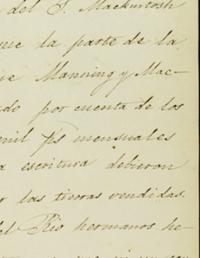 del S. Mackintosh
que la parte de la
Manning y Mac-
do por cuenta de los
mil ps mensuales
a escritura debieron
las tierras vendidas.
del Rio hermanos he-